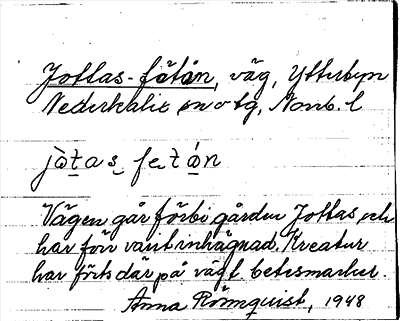 Jottas-fåtån, väg, Ytterbyn
Nederkalix sn o tg, Norrb. l
jòtas fetån
Vägen går förbi gården Jottas, och
har förr varit inhägnad. Kreatur
har förts där på väg t. betesmarker.
Anna Römquist, 1948